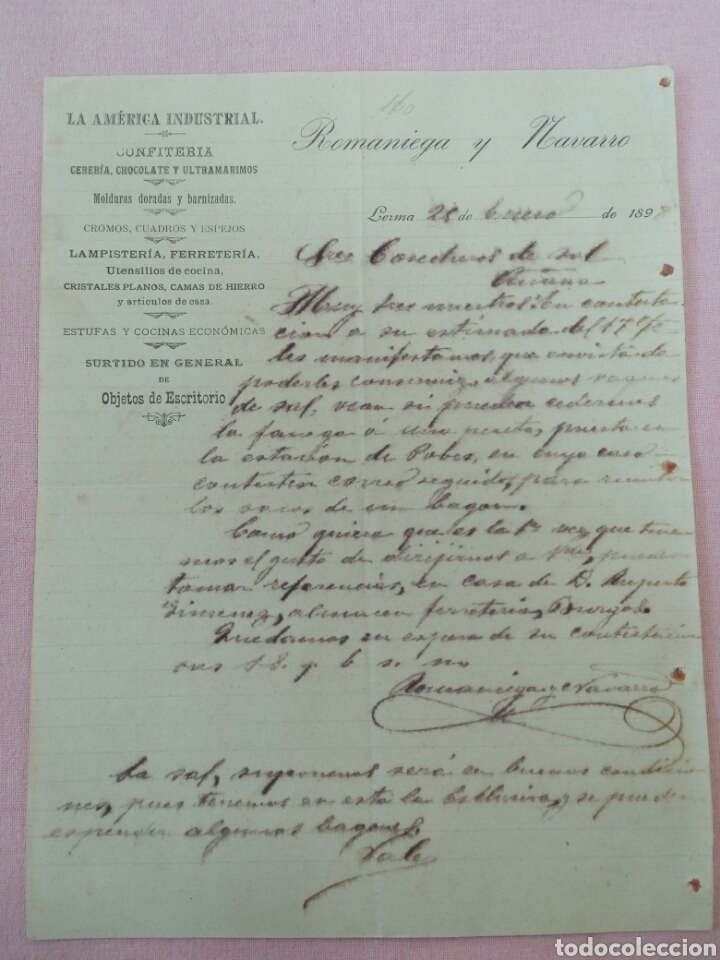 LA AMÉRICA INDUSTRIAL.
CONFITERIA
CERERÍA, CHOCOLATE Y ULTRAMARINOS
Molduras doradas y barnizadas.
CROMOS, CUADROS Y ESPEJOS
LAMPISTERÍA, FERRETERÍA,
Utensilios de cocina,
CRISTALES PLANOS, CAMAS DE HIERRO
y artículos de casa.
ESTUFAS Y COCINAS ECONÓMICAS
SURTIDO EN GENERAL
DE
Objetos de Escritorio
160
Romaniega y Navarro
Lerma 25 de Enero de 189
Sres Cosecheros de sal
Añana
Muy Sres nuestros: En contesta
cion a su estimada del 17
les manifestamos, que en vista de
poderles consumir algunos vagones
de sal, vean si pueden cedernos
la fanega á una peseta, puesta en
la estación de Pobes, en cuyo caso
contesten correo seguido, para remitir
los sacos de un bagon.
Como quiera que es la 1ª vez que tene
mos el gusto de dirijirnos a Vds, pueden
tomar referencias, en casa de D. Augusto
Jimenez, almacen ferreteria, Burgos.
Quedamos en espera de su contestacion
sus S. S. q b s. m
Romaniega y Navarro
La sal, suponemos será en buenas condicio
nes, pues tenemos en esta la y se puede
expender algunos bagones.
Vale
todocoleccion